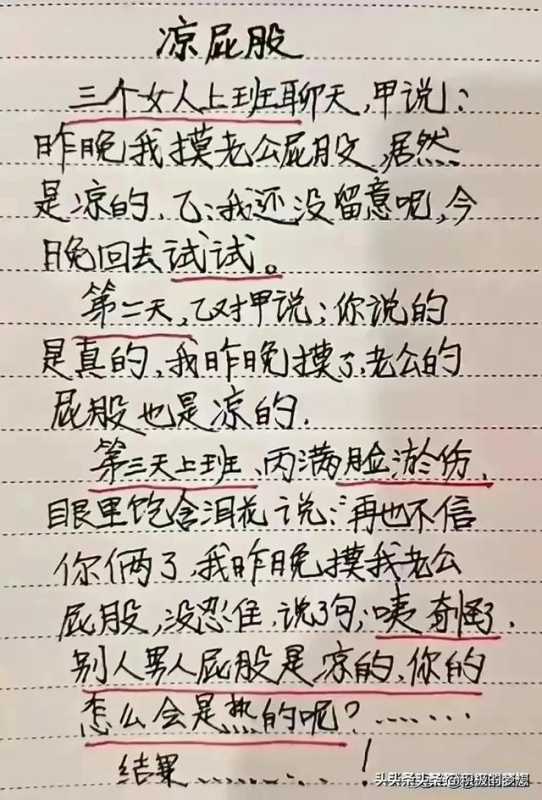 凉屁股
三个女人上班聊天,甲说:
昨晚我摸老公屁股,居然
是凉的、乙:我还没留意呢,今
晚回去试试。
第二天,乙对甲说:你说的
是真的,我昨晚摸了,老公的
屁股也是凉的.
第三天上班、丙满脸淤伤.
眼里饱含泪花说:再也不信
你俩了,我昨晚摸我老公
屁股,没忍住,说了句;咦奇怪了.
别人男人屁股是凉的、你的
怎么会是热的呢?……
结果………!